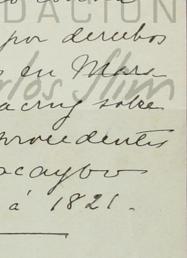 FUNDACIÓN
por derechos
en Mara-
Carlos Slim
acruz sobre
procedentes
acaybo
á 1821.